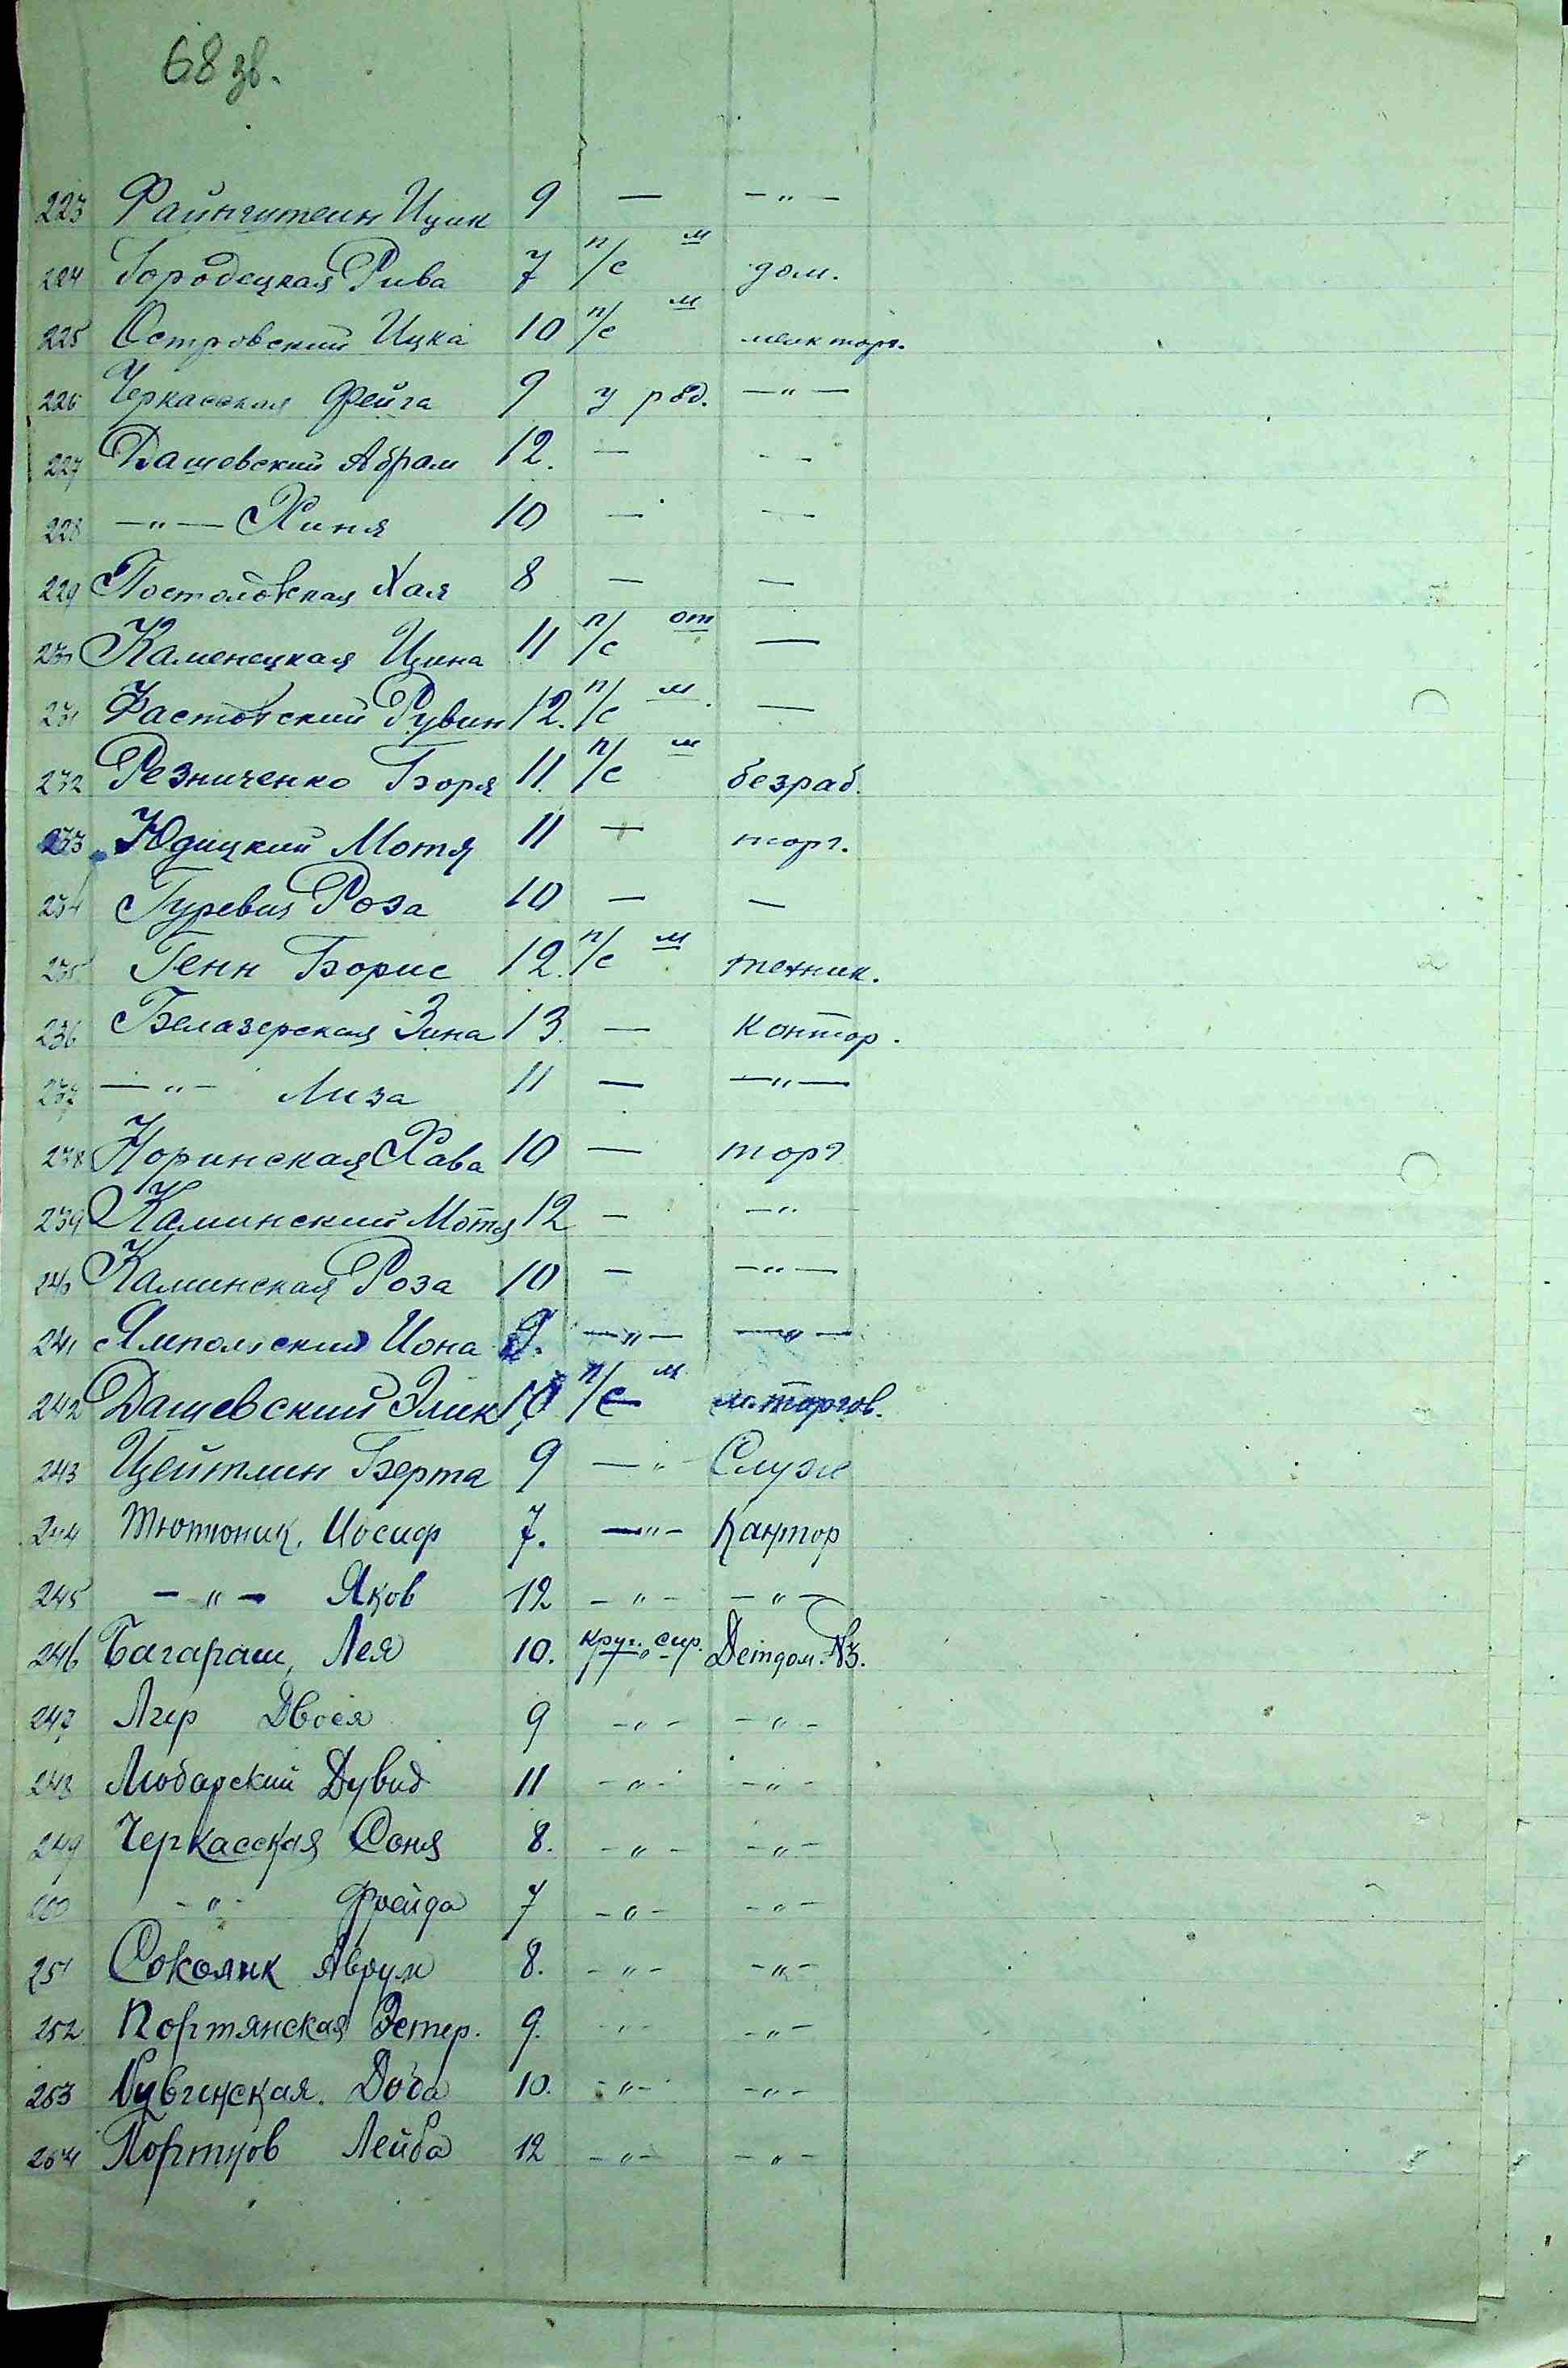 68 зв.
223 Файнштеин Ицик 9 — —"—
224 Городецкая Рива 7 п/с м дом.
225 Островский Ицка 10 п/с м мелк торг.
226 Черкасская Фейга 9 у род. —"—
227 Дашевский Абрам 12. — —
228 —"— Хиня 10 — —
229 Постоловская Хая 8 — —
230 Каменецкая Цина 11 п/с от —
231 Фастовский Рувин 12. п/с м. —
232 Резниченко Боря 11. п/с м безраб.
233 Юдицкий Мотя 11 — торг.
234 Гуревич Роза 10 — —
235 Генн Борис 12. п/с м техник.
236 Белазерская Зина 13. — контор.
237 —"— Лиза 11 — —"—
238 Норинская Хава 10 — торг
239 Каминский Мотя 12 — —"
240 Каминская Роза 10 — —"—
241 Ямпольский Иона 9. —"— —"—
242 Дашевский Элик 10 п/с м м.торгов.
243 Цейтлин Берта 9 —" Служ
244 Тютюник, Иосиф 7. —"— Кантор
245 —"— Яков 12 —"— —"—
246 Багараш, Лея 10. круг. сир. Детдом. №3.
247 Лир Двося 9 —"— —"—
248 Любарский Дувид 11 —"— —"—
249 Черкасская Соня 8. —"— —"—
250 —"— Фрейда 7 —"— —"—
251 Соколик Аврум 8. —"— —"—
252 Портянская Эстер. 9. —"— —"—
253 Доба 10. —"— —"—
254 Портнов Лейба 12 —"— —"—